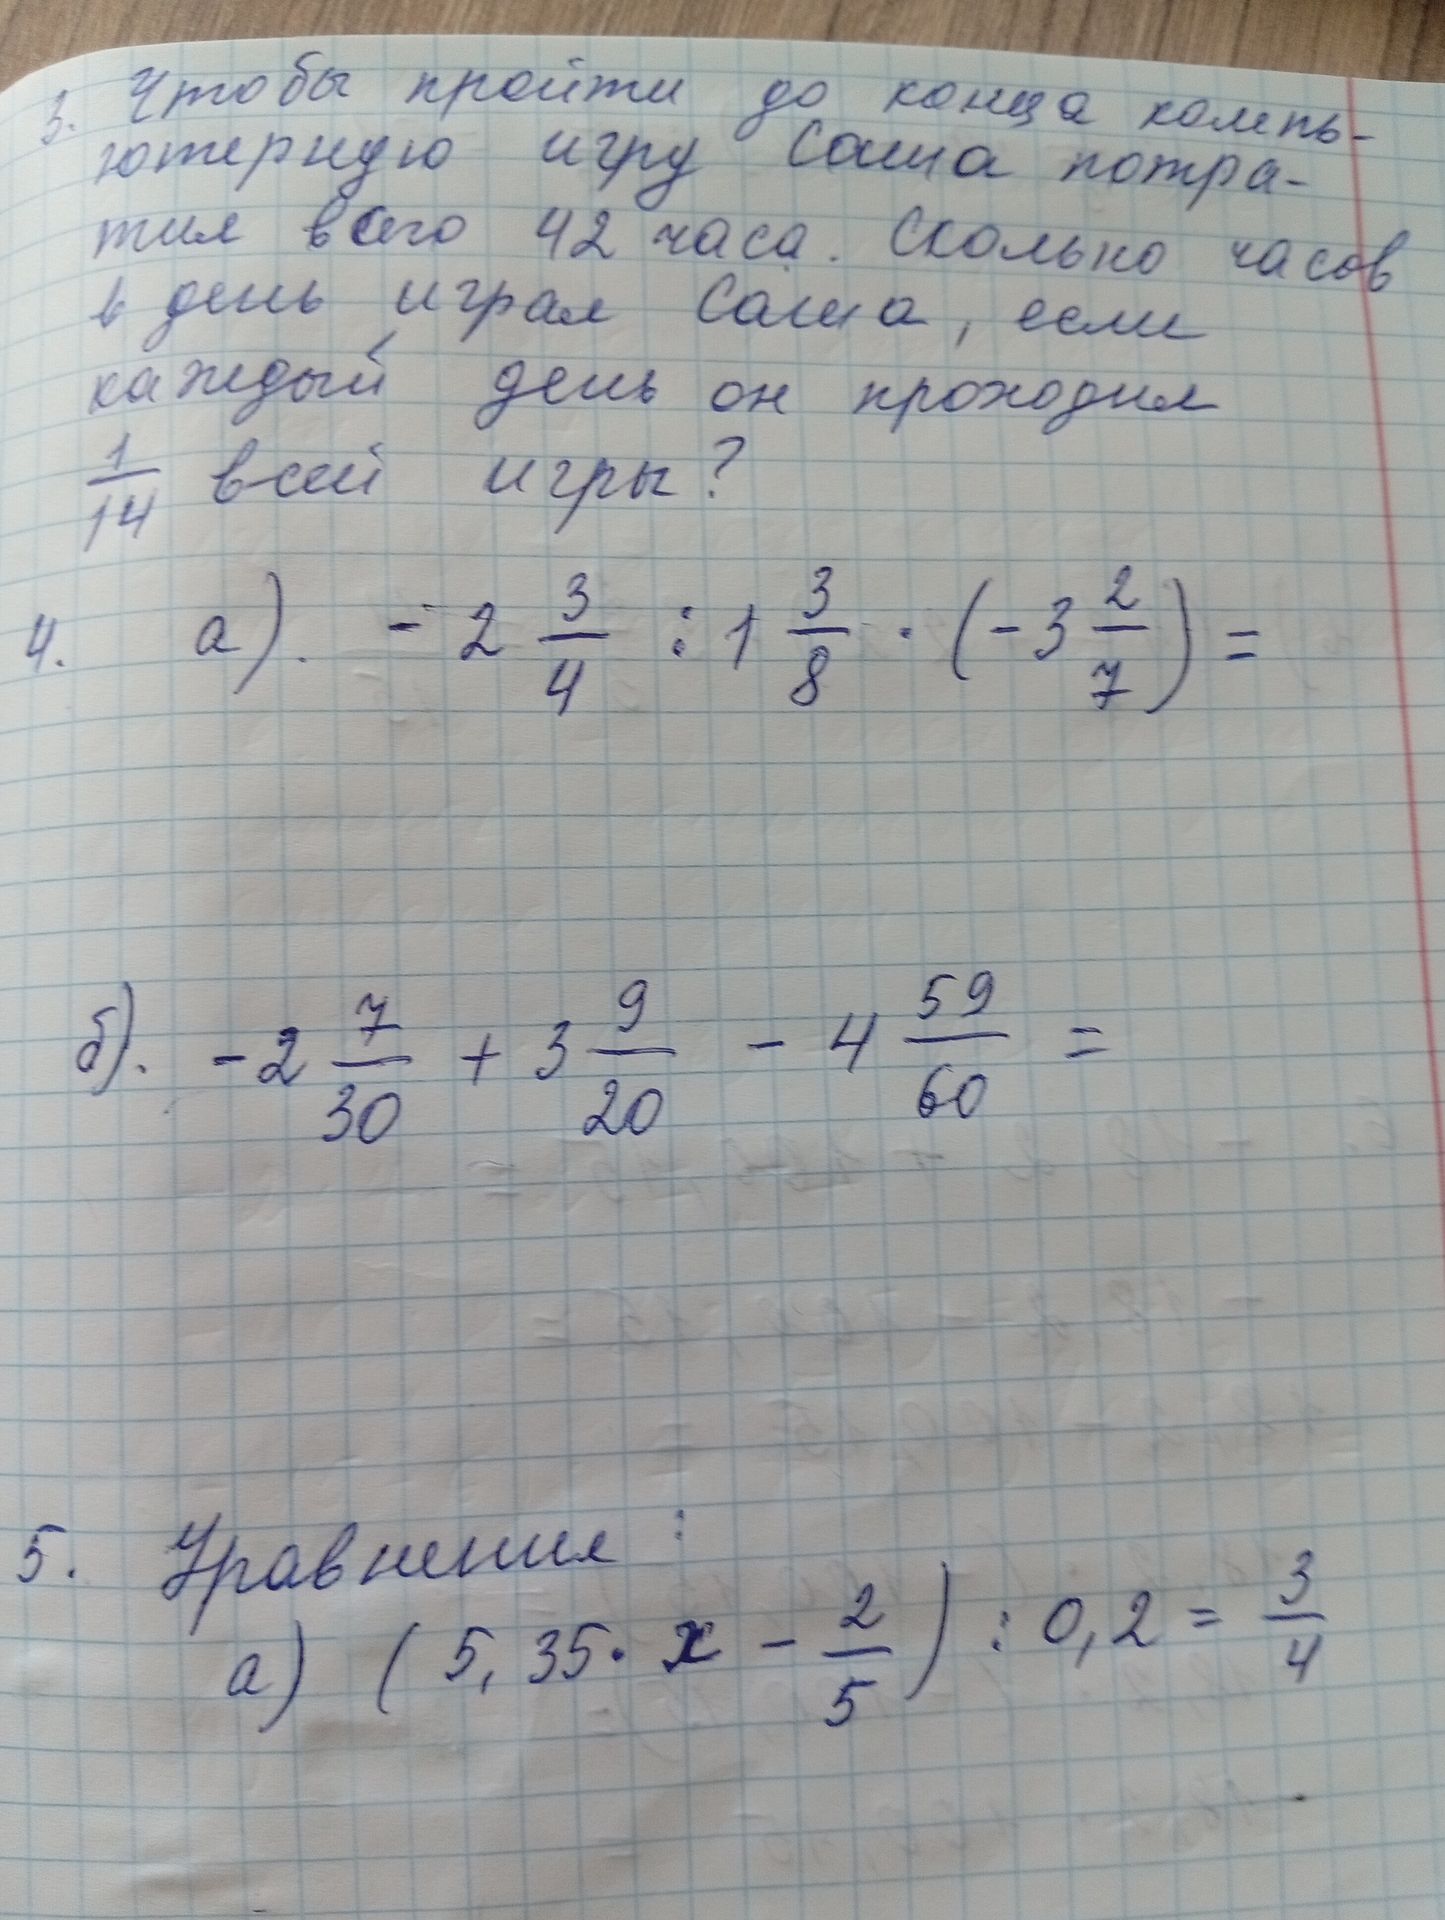 3. Чтобы пройти до конца компь-
ютерную игру Саша потра-
тил всего 42 часа. Сколько часов
в день играл Саша, если
каждый день он проходил
1/14 всей игры?
4. а). - 2 3/4 : 1 3/8 · (-3 2/7) =
б). -2 7/30 + 3 9/20 - 4 59/60 =
5. Уравнения:
а) (5,35· x - 2/5) : 0,2 = 3/4